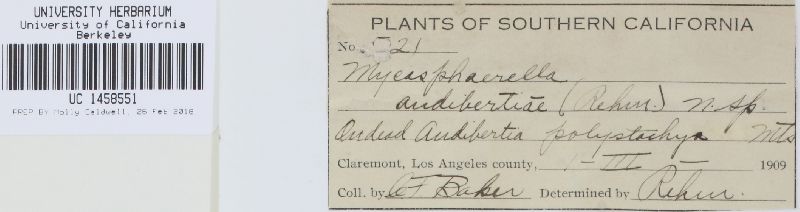 UNIVERSITY HERBARIUM
University of California
Berkeley
UC 1458551
PREP BY Molly Caldwell, 26 Feb 2016
PLANTS OF SOUTHERN CALIFORNIA
No. 21
Mycosphaerella
audibertiae (Rehm.) n. sp.
On dead Audibertia polystachya Mts
Claremont, Los Angeles county, 1-III- 1909
Coll. by CF Baker Determined by Rehm.